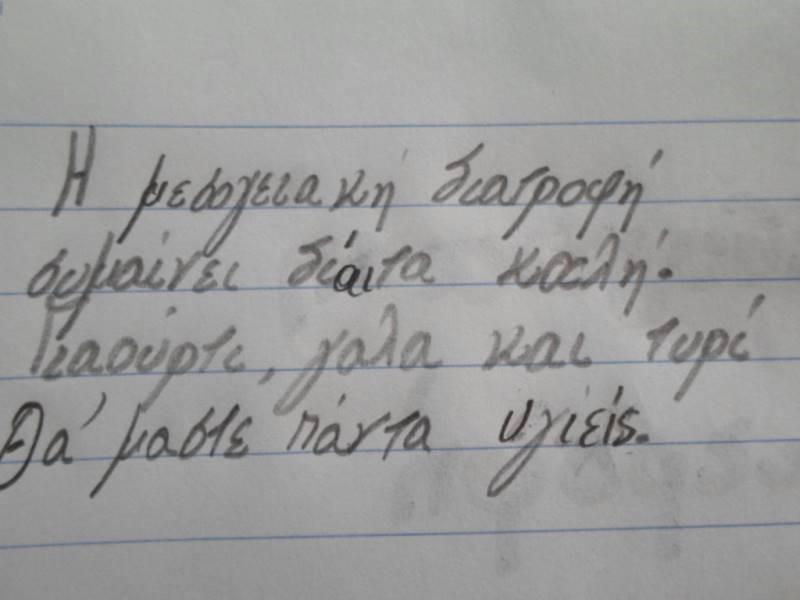 Η μεσογειακή διατροφή
σημαίνει δίαιτα καλή.
Γιαούρτι, γάλα και τυρί
Θα 'μαστε πάντα υγιείς.